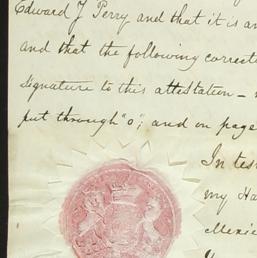 Edward J Perry and that it is an
and that the following correct
signature to this attestation –
put through "o"; and on page
In tes
my Ha
Mexic